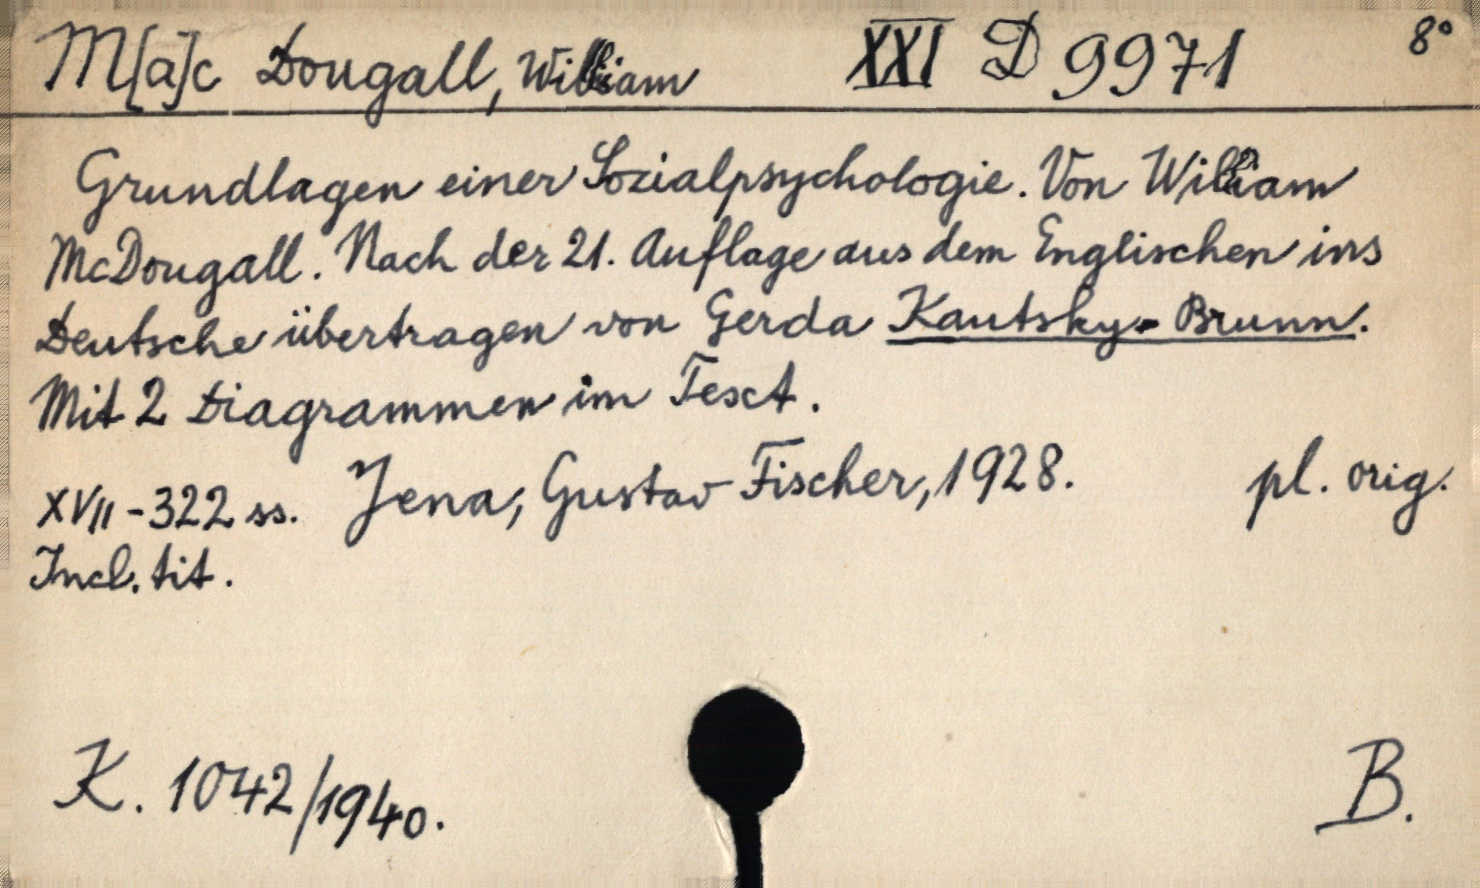 M[a]c Dougall, William XXI D 9971 8°
Grundlagen einer Sozialpsychologie. Von William
McDougall. Nach der 21. Auflage aus dem Englischen ins
Deutsche übertragen von Gerda Kautsky-Brunn.
Mit 2 Diagrammen im Text.
XVII-322 ss. Jena, Gustav Fischer, 1928. pl. orig.
Incl. tit.
K. 1042/1940. B.